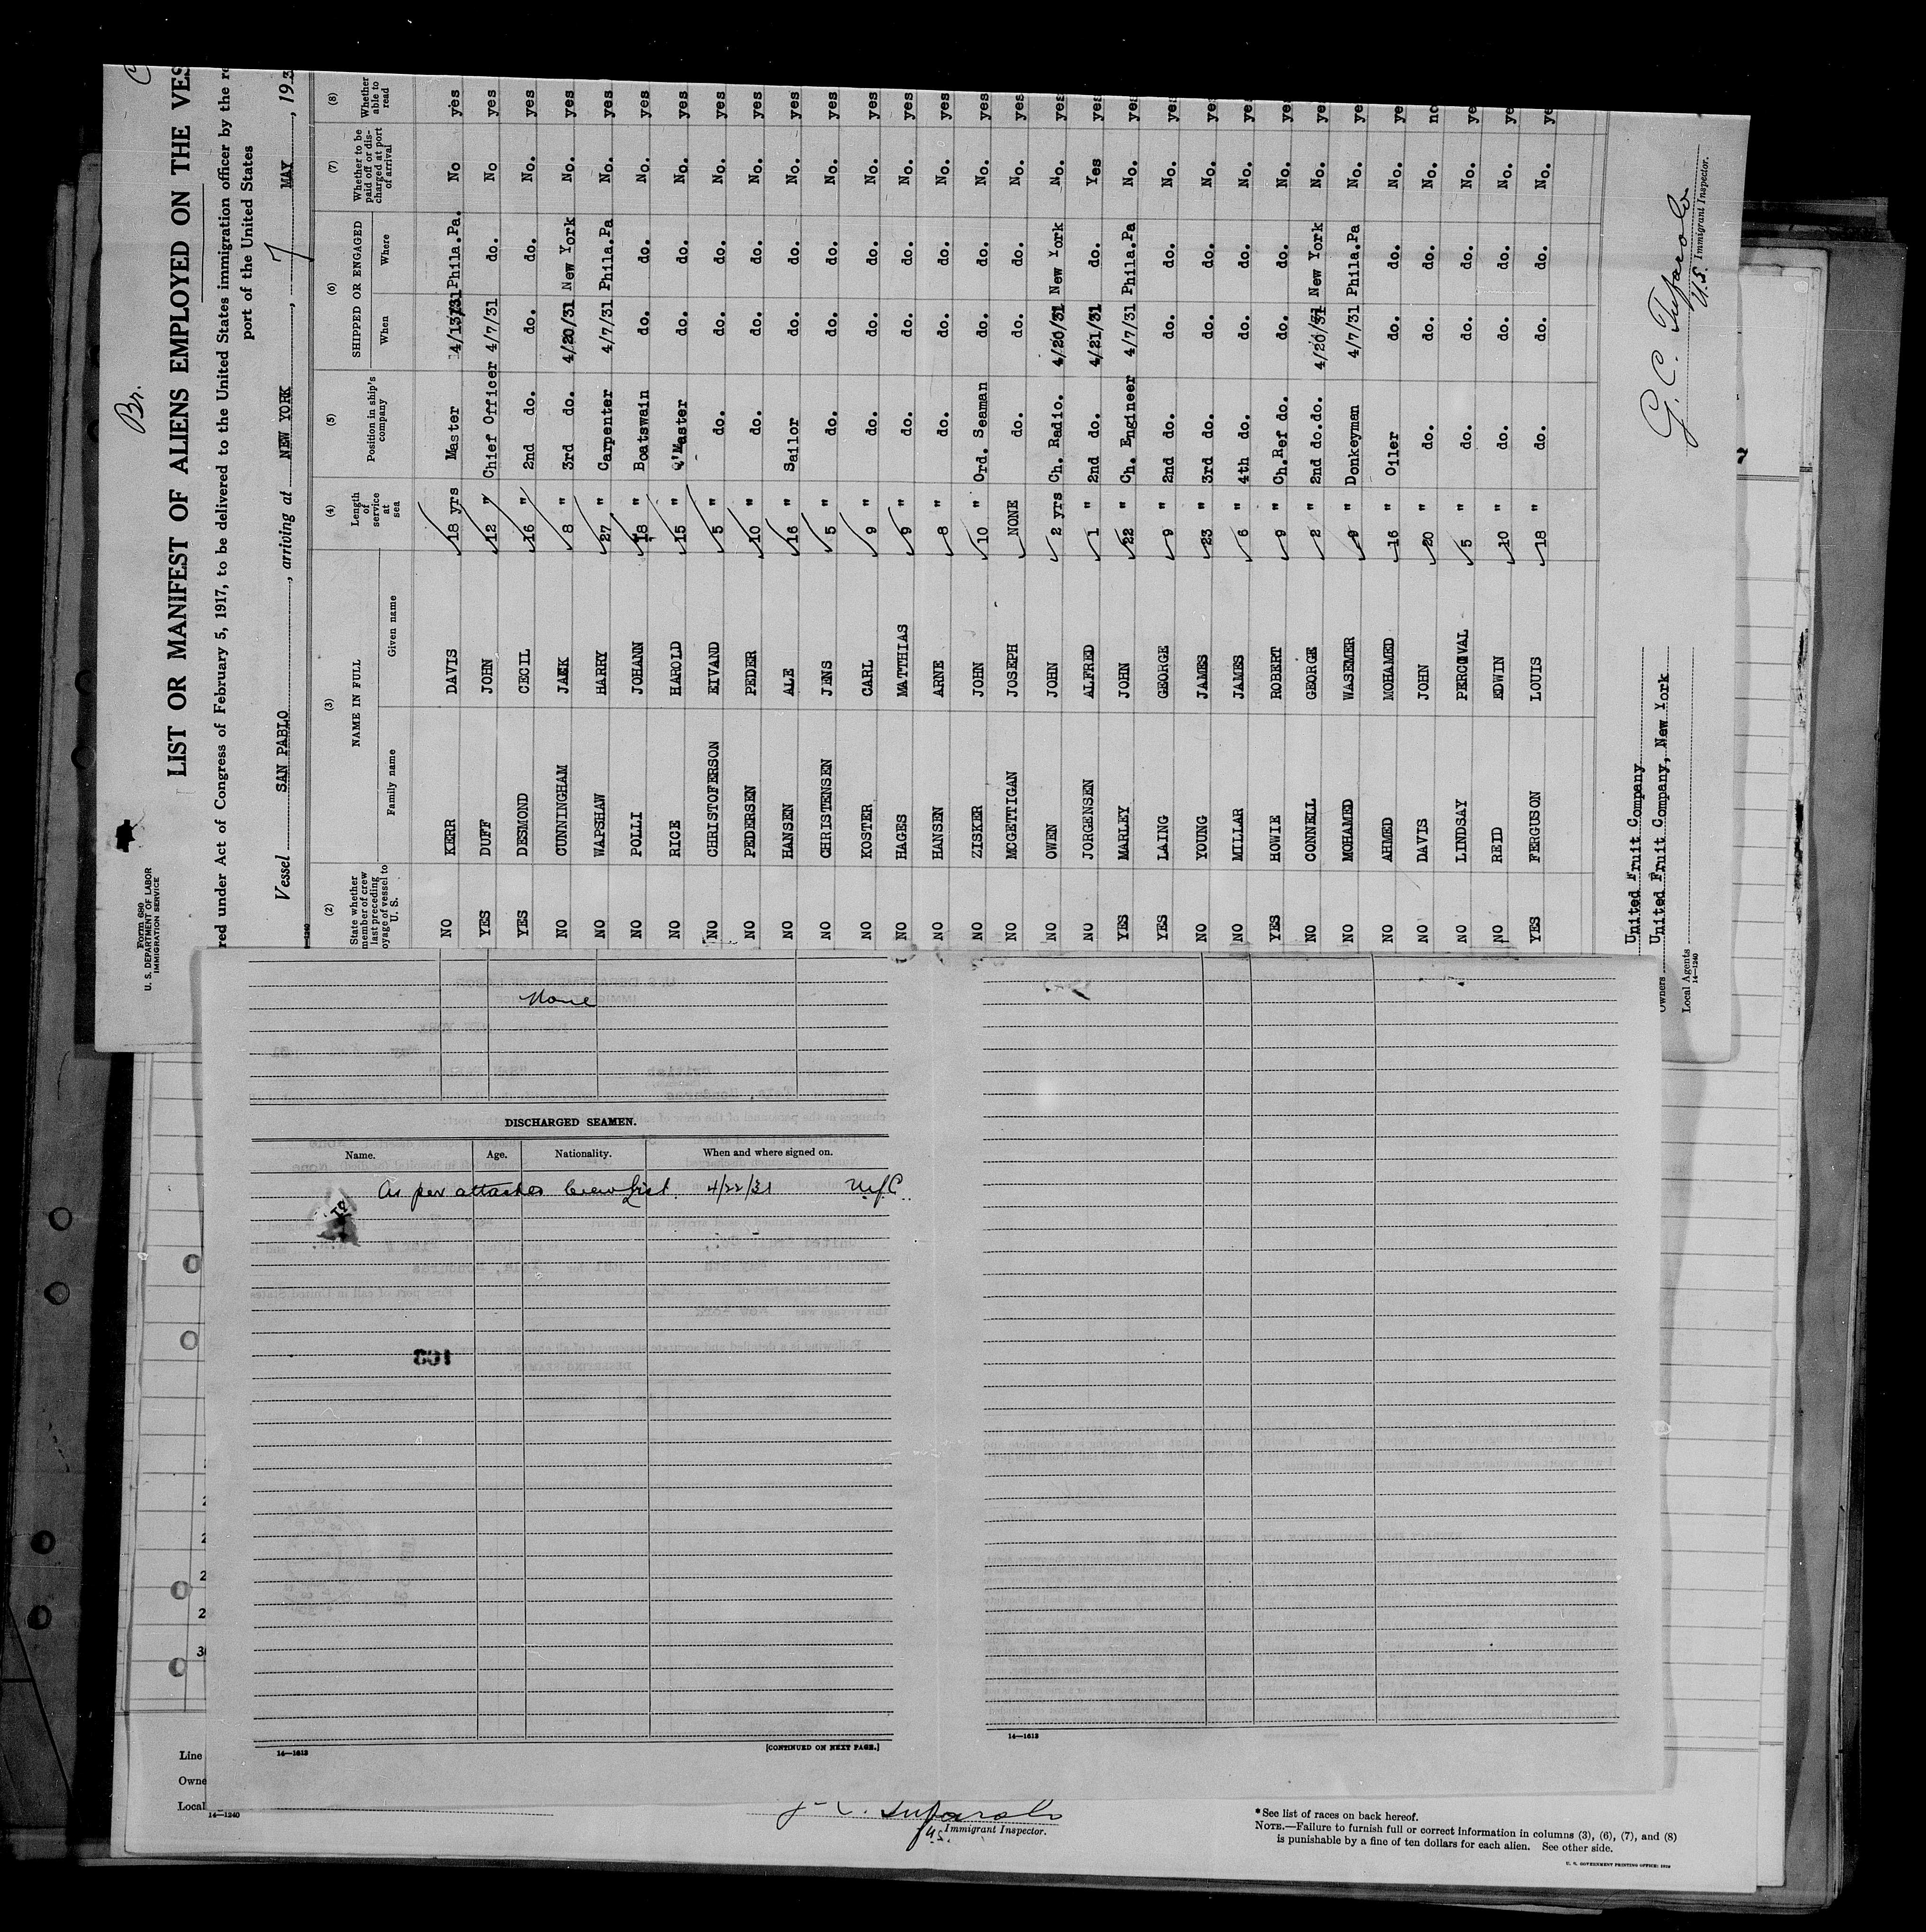 Br.
Form 680
U. S. DEPARTMENT OF LABOR
IMMIGRATION SERVICE
LIST OR MANIFEST OF ALIENS EMPLOYED ON THE VES
red under Act of Congress of February 5, 1917, to be delivered to the United States immigration officer by the re
port of the United States
Vessel SAN PABLO, arriving at NEW YORK, 7 MAY, 193
(2) (3) (4) (5) (6) (7) (8)
State whether member of crew last preceding oyage of vessel to U. S.
NAME IN FULL
Family name Given name
Length of service at sea
Position in ship's company
SHIPPED OR ENGAGED
When Where
Whether to be paid off or discharged at port of arrival
Whether able to read
NO KERR DAVIS 18 yrs Master 4/13/31 Phila.Pa. No yes
YES DUFF JOHN 12 " Chief Officer 4/7/31 do. No yes
YES DESMOND CECIL 16 " 2nd do. do. do. No. yes
NO CUNNINGHAM JACK 8 " 3rd do. 4/20/31 New York No. yes
NO WAPSHAW HARRY 27 " Carpenter 4/7/31 Phila.Pa No. yes
NO POLLI JOHANN 18 " Boatswain do. do. No. yes
NO RICE HAROLD 15 " Q'Master do. do. No. yes
NO CHRISTOFERSON EIVAND 5 " do. do. do. No. yes
NO PEDERSEN PEDER 10 " do. do. do. No. yes
NO HANSEN ALE 16 " Sailor do. do. No. yes
NO CHRISTENSEN JENS 5 " do. do. do. No. yes
NO KOSTER CARL 9 " do. do. do. No. yes
NO HAGES MATTHIAS 9 " do. do. do. No. yes
NO HANSEN ARNE 8 " do. do. do. No. yes
NO ZISKIER JOHN 10 " Ord. Seaman do. do. No. yes
NO MCGETTIGAN JOSEPH NONE do. do. do. No. yes
NO OWEN JOHN 2 yrs Ch. Radio. 4/20/31 New York No. yes
NO JORGENSEN ALFRED 1 " 2nd do. 4/21/31 do. Yes yes
YES MARLEY JOHN 22 " Ch. Engineer 4/7/31 Phila.Pa No. yes
YES LAING GEORGE 9 " 2nd do. do. do. No. yes
NO YOUNG JAMES 23 " 3rd do. do. do. No. yes
NO MILLAR JAMES 6 " 4th do. do. do. No. ye
YES HOWIE ROBERT 9 " Ch.Ref do. do. do. No. yes
NO CONNELL GEORGE 2 " 2nd do.do. 4/20/31 New York No. yes
NO MOHAMED WASEMER 9 " Donkeyman 4/7/31 Phila.Pa No. yes
NO AHMED MOHAMED 16 " Oiler do. do. No. ye
NO DAVIS JOHN 20 " do. do. do. No. no
NO LINDSAY PERCIVAL 5 " do. do. do. No. ye
NO REID EDWIN 10 " do. do. do. No. ye
YES FERGUSON LOUIS 18 " do. do. do. No. ye
United Fruit Company
Owners United Fruit Company, New York
Local Agents
14—1240
G. C. Tufarolo
U.S. Immigrant Inspector.
None
DISCHARGED SEAMEN.
Name. Age. Nationality. When and where signed on.
As per attached Crew List. 4/22/31
801
14—1613
[CONTINUED ON NEXT PAGE.]
14—1613
Line
Owne
Local
14—1240
Tufarolo
U.S. Immigrant Inspector.
*See list of races on back hereof.
NOTE.—Failure to furnish full or correct information in columns (3), (6), (7), and (8)
is punishable by a fine of ten dollars for each alien. See other side.
U. S. GOVERNMENT PRINTING OFFICE: 1929